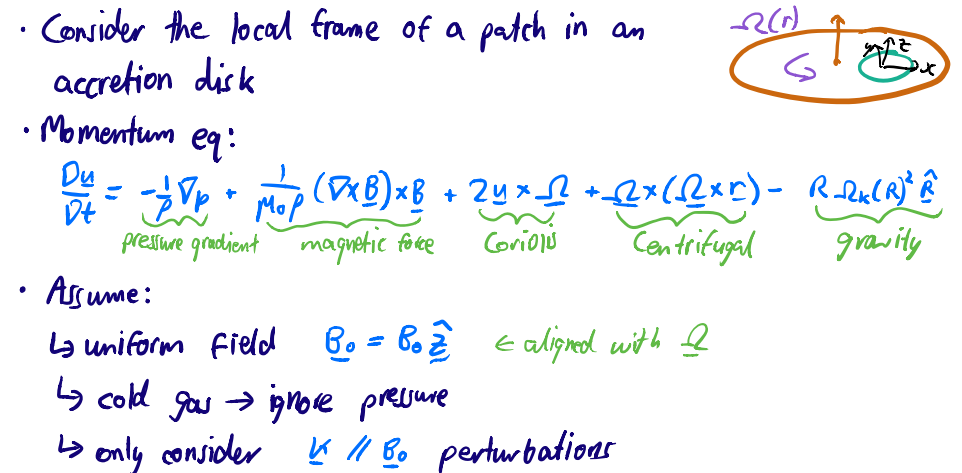 · Consider the local frame of a patch in an
accretion disk
Ω(r)
y z x
· Momentum eq:
Du/Dt = -1/ρ ∇p + 1/(μ₀ρ) (∇×B)×B + 2u×Ω + Ω×(Ω×r) - R Ωₖ(R)² R̂
pressure gradient magnetic force Coriolis Centrifugal gravity
· Assume:
↳ uniform field B₀ = B₀ ẑ ← aligned with Ω
↳ cold gas → ignore pressure
↳ only consider k // B₀ perturbations